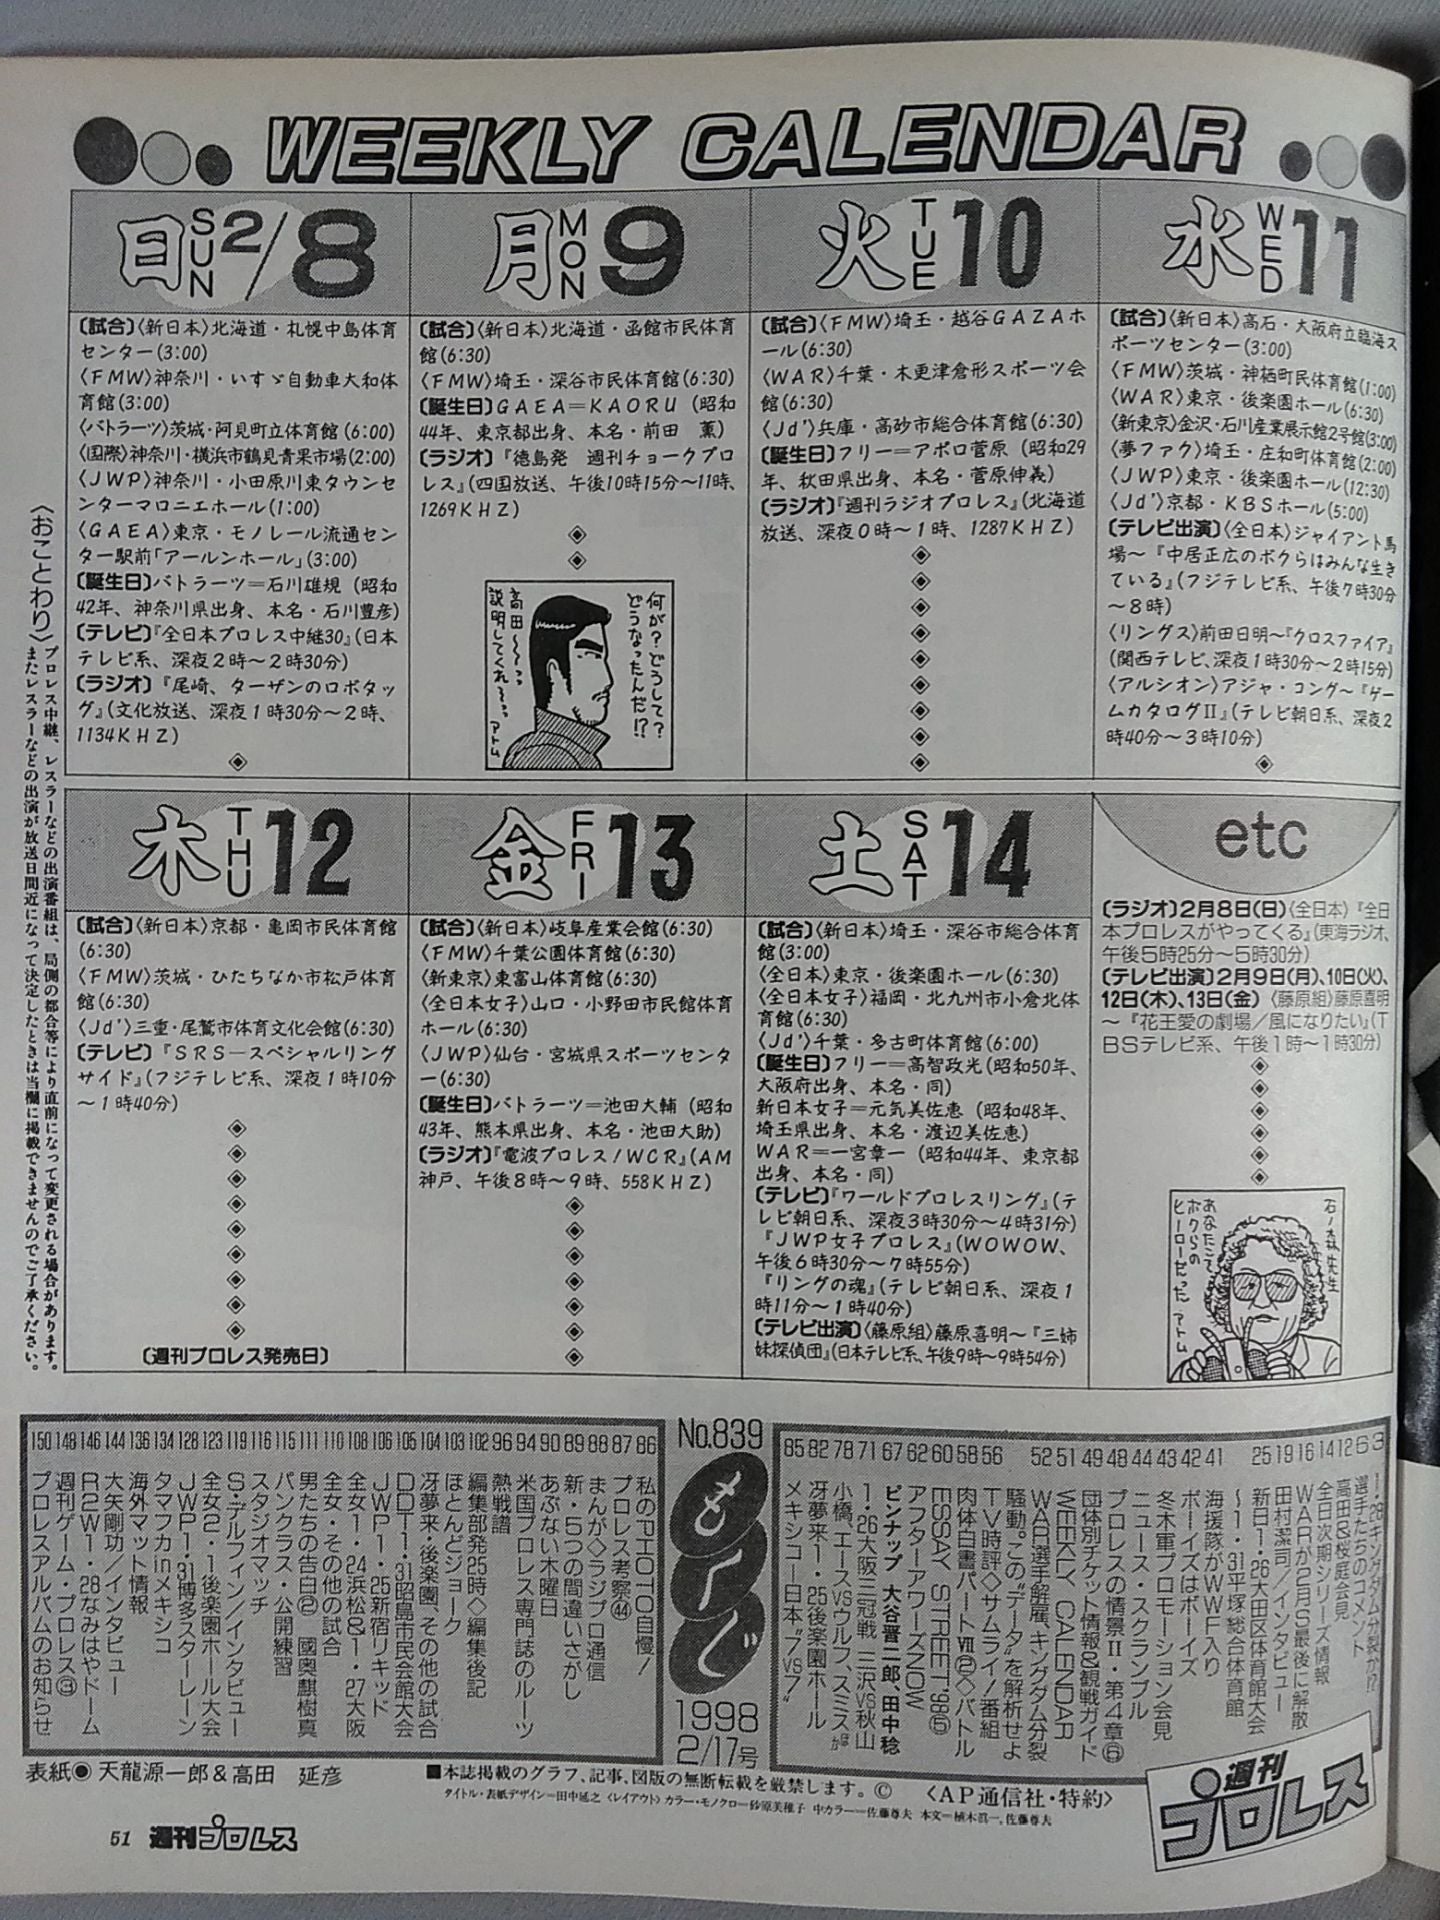 WEEKLY CALENDAR
日 SUN 2/8
〔試合〕〈新日本〉北海道・札幌中島体育
センター(3:00)
〈FMW〉神奈川・いすゞ自動車大和体
育館(3:00)
〈バトラーツ〉茨城・阿見町立体育館(6:00)
〈国際〉神奈川・横浜市鶴見青果市場(2:00)
〈JWP〉神奈川・小田原川東タウンセ
ンターマロニエホール(1:00)
〈GAEA〉東京・モノレール流通セン
ター駅前「アールンホール」(3:00)
〔誕生日〕バトラーツ＝石川雄規（昭和
42年、神奈川県出身、本名・石川豊彦）
〔テレビ〕『全日本プロレス中継30』(日本
テレビ系、深夜2時〜2時30分)
〔ラジオ〕『尾崎、ターザンのロボタッ
グ』(文化放送、深夜1時30分〜2時、
1134KHZ)
月 MON 9
〔試合〕〈新日本〉北海道・函館市民体育
館(6:30)
〈FMW〉埼玉・深谷市民体育館(6:30)
〔誕生日〕GAEA＝KAORU（昭和
44年、東京都出身、本名・前田　薫）
〔ラジオ〕『徳島発　週刊チョークプロ
レス』(四国放送、午後10時15分〜11時、
1269KHZ)
何が？どうして？
どうなったんだ!?
高田〜〜っ
説明してくれ〜っ
アトム
火 TUE 10
〔試合〕〈FMW〉埼玉・越谷GAZAホ
ール(6:30)
〈WAR〉千葉・木更津倉形スポーツ会
館(6:30)
〈Jd'〉兵庫・高砂市総合体育館(6:30)
〔誕生日〕フリー＝アポロ菅原（昭和29
年、秋田県出身、本名・菅原伸義）
〔ラジオ〕『週刊ラジオプロレス』(北海道
放送、深夜0時〜1時、1287KHZ)
水 WED 11
〔試合〕〈新日本〉高石・大阪府立臨海ス
ポーツセンター(3:00)
〈FMW〉茨城・神栖町民体育館(1:00)
〈WAR〉東京・後楽園ホール(6:30)
〈新東京〉金沢・石川産業展示館2号館(3:00)
〈夢ファク〉埼玉・庄和町体育館(2:00)
〈JWP〉東京・後楽園ホール(12:30)
〈Jd'〉京都・KBSホール(5:00)
〔テレビ出演〕〈全日本〉ジャイアント馬
場〜『中居正広のボクらはみんな生き
ている』(フジテレビ系、午後7時30分
〜8時)
〈リングス〉前田日明〜『クロスファイア』
(関西テレビ、深夜1時30分〜2時15分)
〈アルシオン〉アジャ・コング〜『ゲー
ムカタログII』(テレビ朝日系、深夜2
時40分〜3時10分)
木 THU 12
〔試合〕〈新日本〉京都・亀岡市民体育館
(6:30)
〈FMW〉茨城・ひたちなか市松戸体育
館(6:30)
〈Jd'〉三重・尾鷲市体育文化会館(6:30)
〔テレビ〕『SRS－スペシャルリング
サイド』(フジテレビ系、深夜1時10分
〜1時40分)
〔週刊プロレス発売日〕
金 FRI 13
〔試合〕〈新日本〉岐阜産業会館(6:30)
〈FMW〉千葉公園体育館(6:30)
〈新東京〉東富山体育館(6:30)
〈全日本女子〉山口・小野田市民館体育
ホール(6:30)
〈JWP〉仙台・宮城県スポーツセンタ
ー(6:30)
〔誕生日〕バトラーツ＝池田大輔（昭和
43年、熊本県出身、本名・池田大助）
〔ラジオ〕『電波プロレス！WCR』(AM
神戸、午後8時〜9時、558KHZ)
土 SAT 14
〔試合〕〈新日本〉埼玉・深谷市総合体育館
(3:00)
〈全日本〉東京・後楽園ホール(6:30)
〈全日本女子〉福岡・北九州市小倉北体
育館(6:30)
〈Jd'〉千葉・多古町体育館(6:00)
〔誕生日〕フリー＝高智政光(昭和50年、
大阪府出身、本名・同)
新日本女子＝元気美佐恵（昭和48年、
埼玉県出身、本名・渡辺美佐恵）
WAR＝一宮章一（昭和44年、東京都
出身、本名・同）
〔テレビ〕『ワールドプロレスリング』(テ
レビ朝日系、深夜3時30分〜4時31分)
『JWP女子プロレス』(WOWOW、
午後6時30分〜7時55分)
『リングの魂』(テレビ朝日系、深夜1
時11分〜1時40分)
〔テレビ出演〕〈藤原組〉藤原喜明〜『三姉
妹探偵団』(日本テレビ系、午後9時〜9時54分)
etc
〔ラジオ〕2月8日(日)〈全日本〉『全日
本プロレスがやってくる』(東海ラジオ、
午後5時25分〜5時30分)
〔テレビ出演〕2月9日(月)、10日(火)、
12日(木)、13日(金)〈藤原組〉藤原喜明
〜『花王愛の劇場／風になりたい』(T
BSテレビ系、午後1時〜1時30分)
石ノ森先生
あなたこそ
ボクらの
ヒーローだった
アトム
〈おことわり〉プロレス中継、レスラーなどの出演番組は、局側の都合等により直前になって変更される場合があります。
またレスラーなどの出演が放送日間近になって決定したときは当欄に掲載できませんのでご了承ください。
No.839
もくじ
1998
2/17号
3 1・28キングダム分裂か!?
6 選手たちのコメント
12 高田&桜庭会見
14 全日次期シリーズ情報
16 WARが2月S最後に解散
19 田村潔司／インタビュー
25 新日1・26大田区体育館大会
〜1・31平塚総合体育館
41 海援隊がWWF入り
42 ボーイズはボーイズ
43 冬木軍プロモーション会見
44 ニュース・スクランブル
48 プロレスの情景II・第4章⑥
49 団体別チケット情報&観戦ガイド
51 WEEKLY CALENDAR
52 WAR選手解雇、キングダム分裂
騒動。この“データ”を解析せよ
56 TV時評◇サムライ！番組
58 肉体白書パートVII⑫◇バトル
60 ESSAY STREET'98⑤
62 アフターアワーズNOW
67 ピンナップ　大谷晋二郎、田中稔
71 1・26大阪三冠戦　三沢VS秋山
78 小橋、エースVSウルフ、スミスほか
82 冴夢来1・25後楽園ホール
85 メキシコー日本“7VS7”
86 私のPHOTO自慢！
87 プロレス考察㊹
88 まんが◇ラジプロ通信
89 新・5つの間違いさがし
90 あぶない木曜日
94 米国プロレス専門誌のルーツ
96 熱戦譜
102 編集部発25時◇編集後記
103 ほとんどジョーク
104 冴夢来・後楽園、その他の試合
105 DDT1・31昭島市民会館大会
106 JWP1・25新宿リキッド
108 全女1・24浜松&1・27大阪
110 全女・その他の試合
111 男たちの告白②　國奥麒樹真
115 パンクラス・公開練習
116 スタジオマッチ
119 S・デルフィン／インタビュー
123 全女2・1後楽園ホール大会
128 JWP1・31博多スターレーン
134 タマフカinメキシコ
136 海外マット情報
144 大矢剛功／インタビュー
146 R2W1・28なみはやドーム
148 週刊ゲーム・プロレス③
150 プロレスアルバムのお知らせ
表紙◉天龍源一郎＆高田　延彦
■本誌掲載のグラフ、記事、図版の無断転載を厳禁します。©　〈AP通信社・特約〉
タイトル・表紙デザイン＝田中延之〈レイアウト〉カラー・モノクロ＝砂原美穂子 中カラー＝佐藤尊夫 本文＝植木眞一、佐藤尊夫
週刊プロレス
51 週刊プロレス